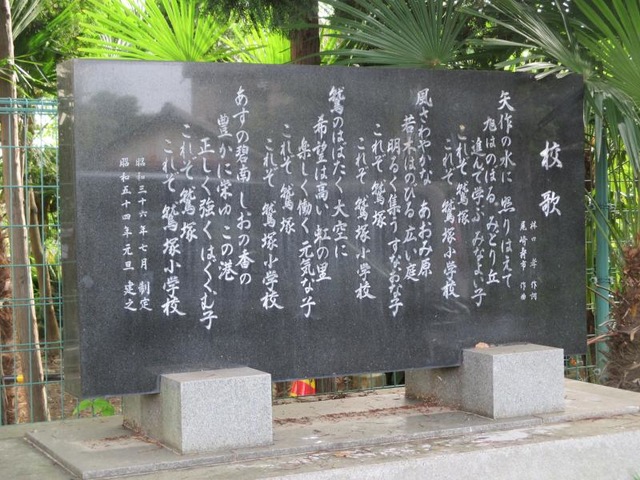 校歌
林田 孝 作詞
尾崎寿市 作曲
矢作の水に 照りはえて
旭はのぼる みどり丘
進んで学ぶ みなよい子
これぞ 鷲塚
これぞ 鷲塚小学校
風さわやかな あおみ原
若木はのびる 広い庭
明るく集う すなおな子
これぞ 鷲塚
これぞ 鷲塚小学校
鷲のはばたく 大空に
希望は高い 虹の里
楽しく働く 元気な子
これぞ 鷲塚
これぞ 鷲塚小学校
あすの碧南 しおの香の
豊かに栄ゆ この港
正しく強く はぐくむ子
これぞ 鷲塚
これぞ 鷲塚小学校
昭和三十六年七月 制定
昭和五十四年元旦 建之